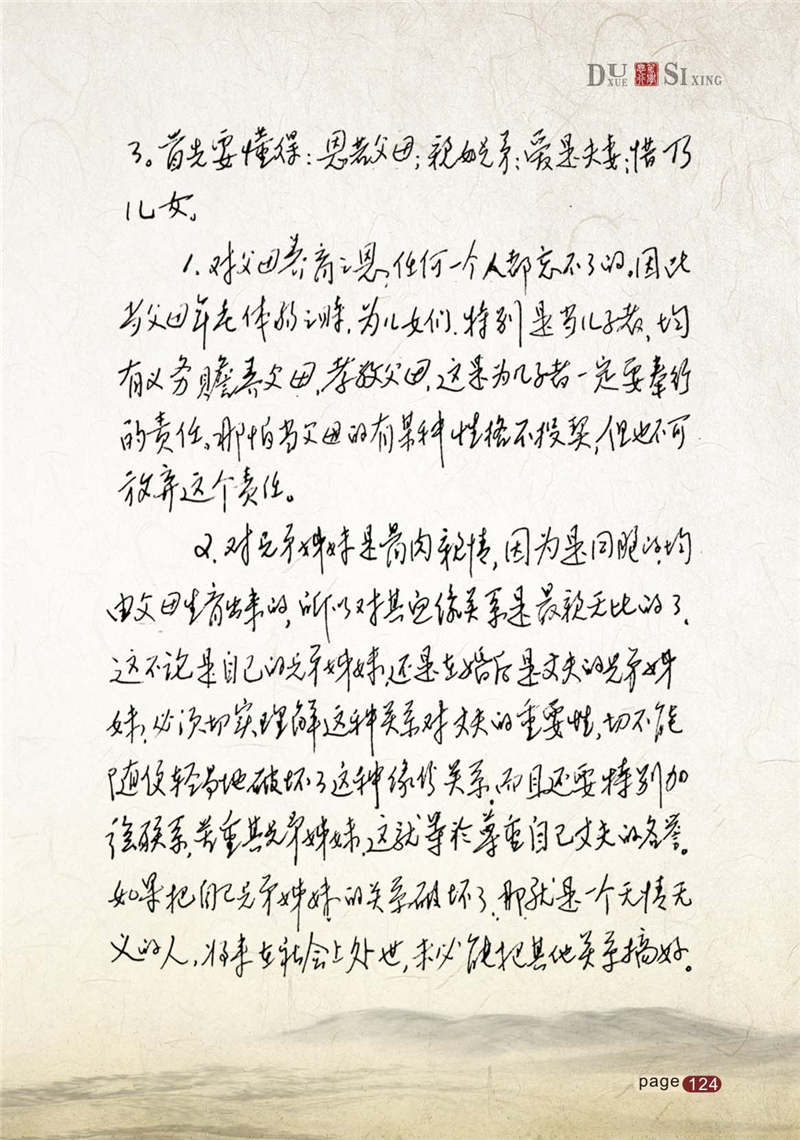 DU XUE SI XING
了。首先要懂得：恩若父母；亲如兄弟；爱是夫妻；惜乃
儿女。
1.对父母养育之恩，任何一个人都忘不了的。因此
当父母年老体弱之时，为儿女们，特别是当儿子者，均
有义务赡养父母，孝敬父母，这是为儿子者一定要奉行
的责任。哪怕当父母的有某种性格不投契，但也不可
放弃这个责任。
2.对兄弟姊妹是骨肉亲情，因为是同胞的，均
由父母生育出来的，所以对其血缘关系是最亲无比的了，
这不论是自己的兄弟姊妹，还是在婚后是丈夫的兄弟姊
妹，必须切实理解这种关系对丈夫的重要性，切不能
随便轻易地破坏了这种缘分关系。而且还要特别加
强联系，尊重其兄弟姊妹，这就等於尊重自己丈夫的名誉。
如果把自己兄弟姊妹的关系破坏了，那就是一个无情无
义的人，将来在社会上处世，未必能把其他关系搞好。
page 124